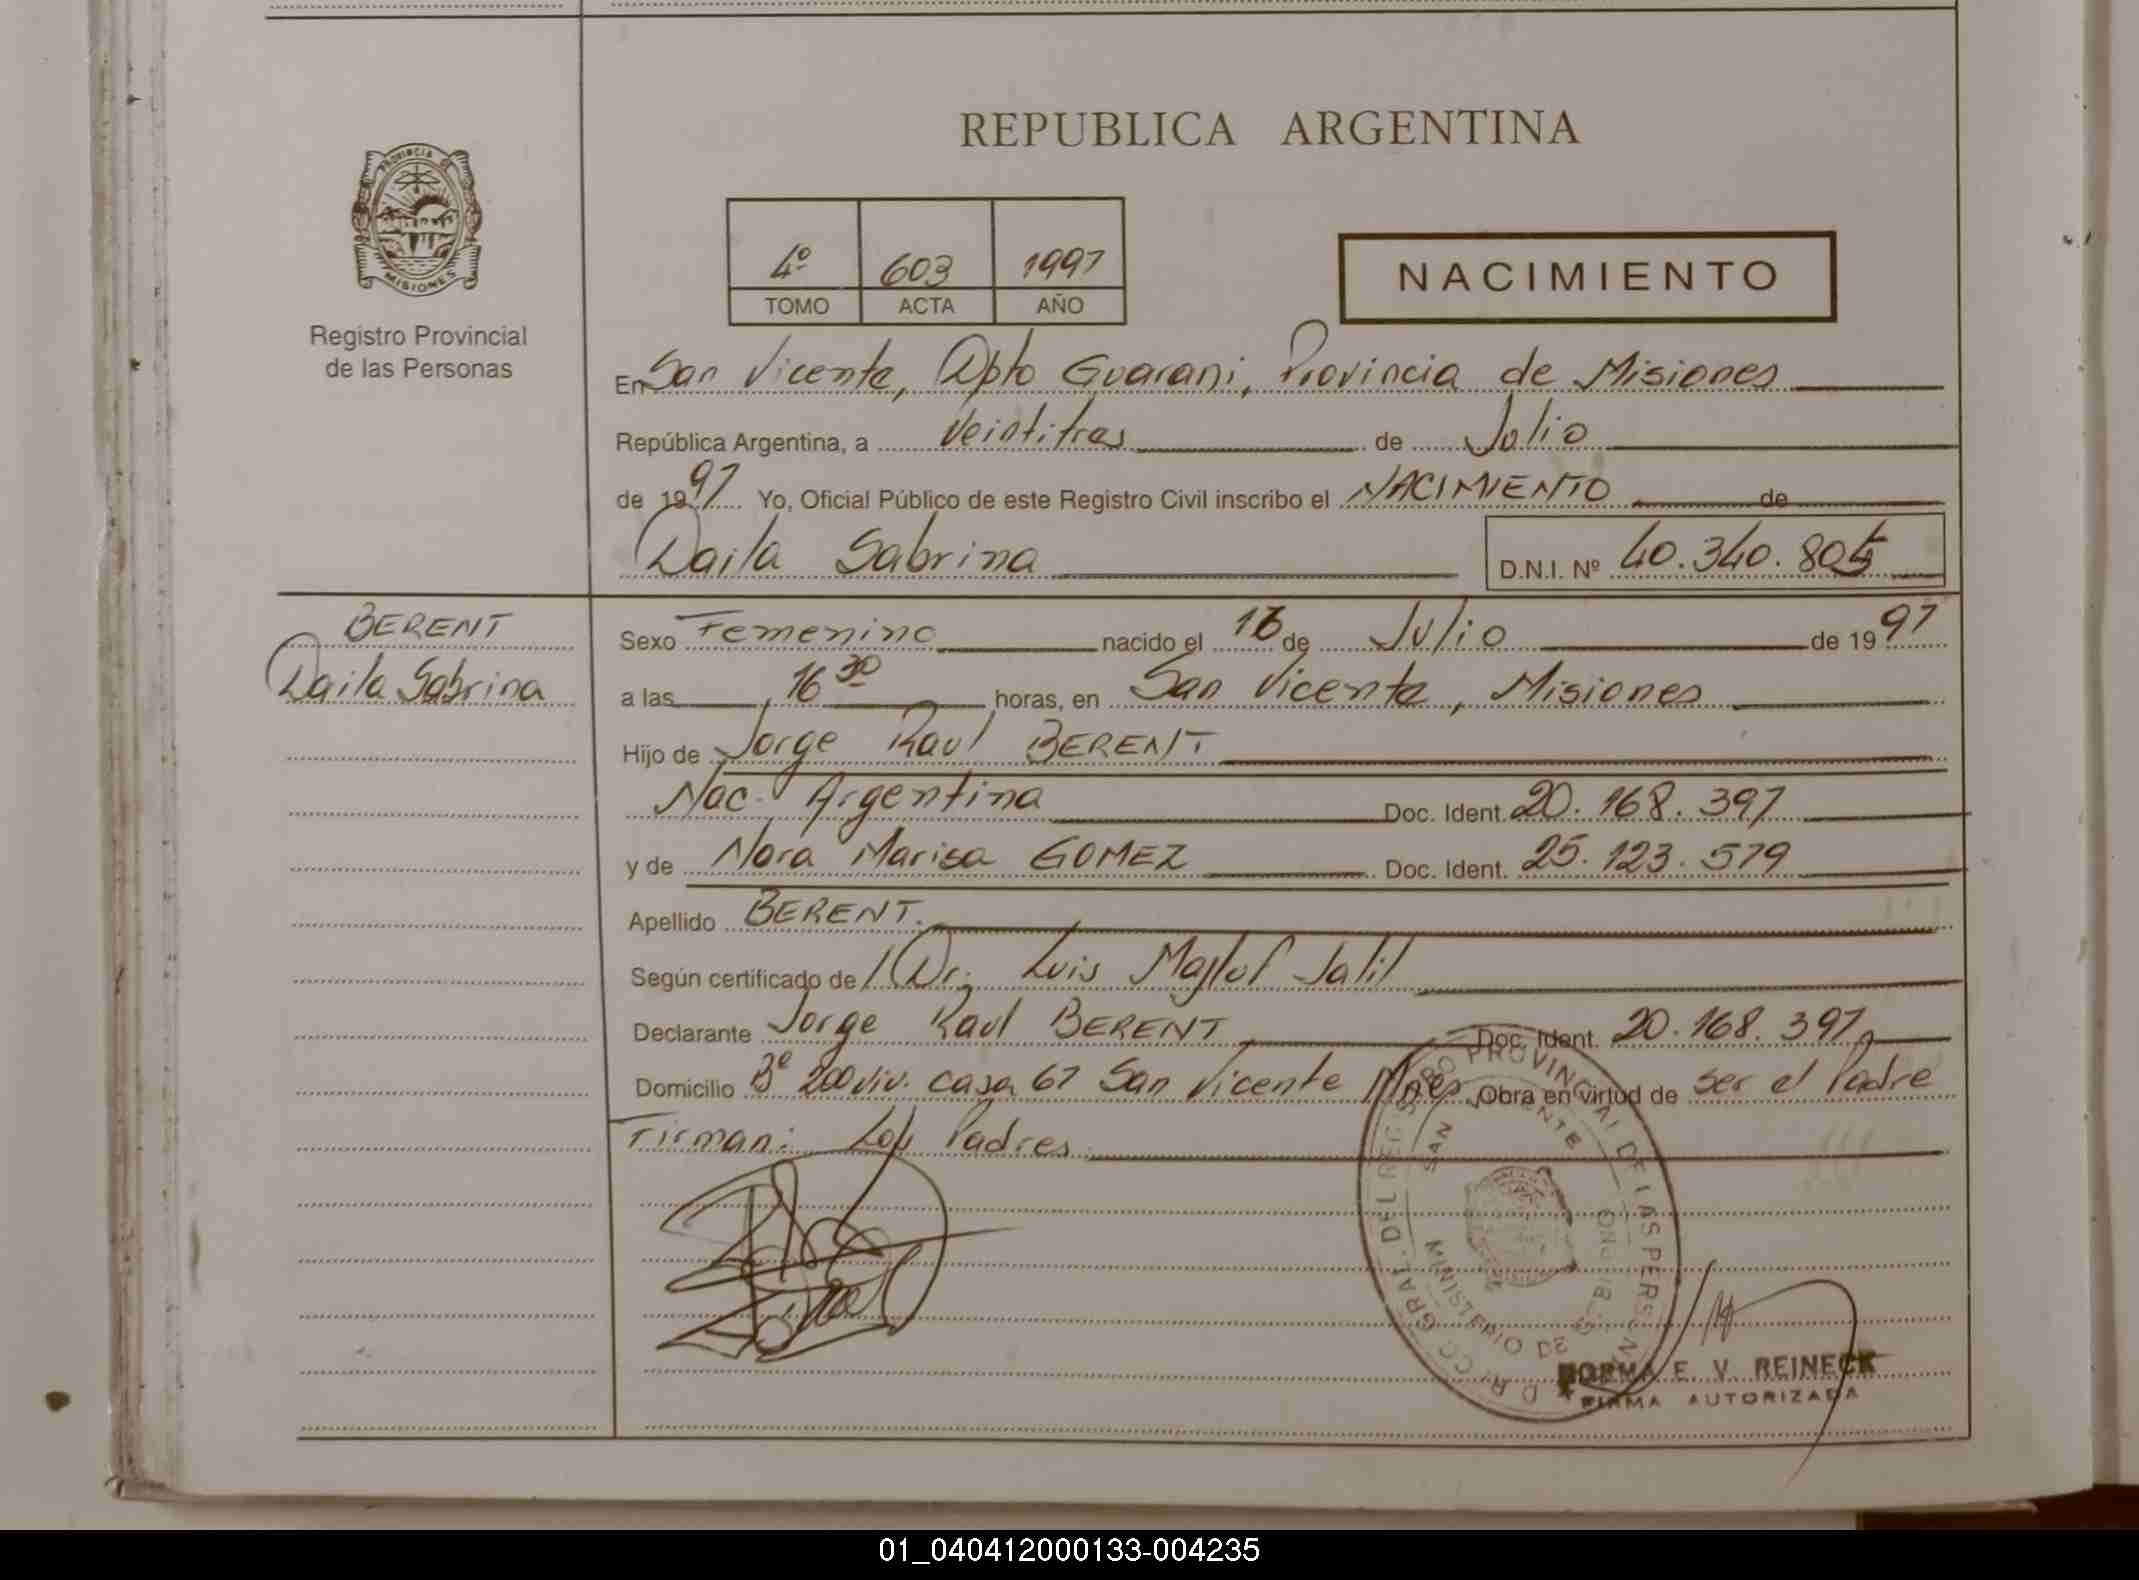 REPUBLICA ARGENTINA
PROVINCIA
MISIONES
Registro Provincial
de las Personas
4º 603 1997
TOMO ACTA AÑO
NACIMIENTO
En San Vicente, Dpto Guarani, Provincia de Misiones
República Argentina, a Veintitres de Julio
de 1997 Yo, Oficial Público de este Registro Civil inscribo el NACIMIENTO de
Daila Sabrina D.N.I. Nº 40.340.805
BERENT
Daila Sabrina
Sexo Femenino nacido el de Julio de 1997
a las 16 30 horas, en San Vicente, Misiones
Hijo de Jorge Raul BERENT
Nac. Argentina Doc. Ident. 20.168.397
y de Nora Marisa GOMEZ Doc. Ident. 25.123.579
Apellido BERENT.
Según certificado de Dr. Luis Jalil
Declarante Jorge Raul BERENT Doc. Ident. 20.168.397
Domicilio Bº 200 viv. casa 67 San Vicente Mnes Obra en virtud de ser el Padre
Firman: Los Padres
D.R.CC GRAL. DEL REGISTRO PROVINCIAL DE LAS PERSONAS
SAN VICENTE
MINISTERIO DE GOBIERNO
NORMA E. V. REINECK
FIRMA AUTORIZADA
01_040412000133-004235